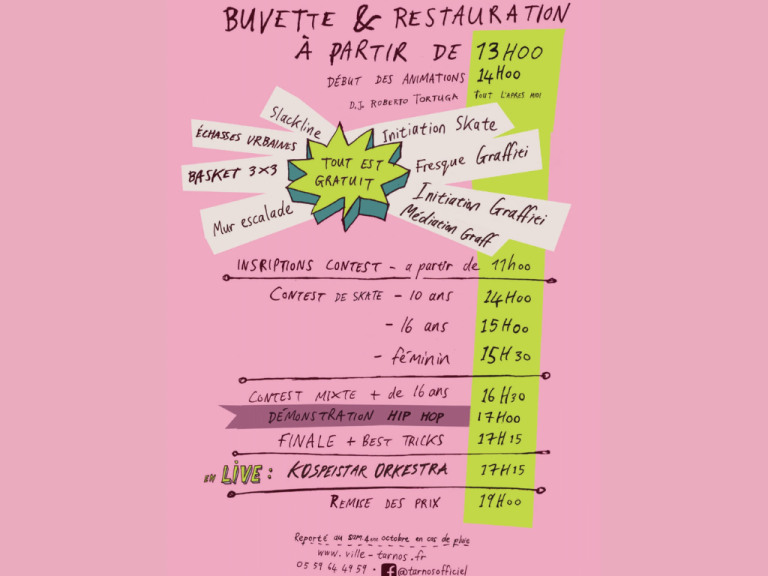 BUVETTE & RESTAURATION
À PARTIR DE 13H00
DÉBUT DES ANIMATIONS 14H00
D.J. ROBERTO TORTUGA TOUT L'APRES MIDI
Slackline
ÉCHASSES URBAINES
BASKET 3x3
Mur escalade
TOUT EST
GRATUIT
Initiation Skate
Fresque Graffiti
Initiation Graffiti
Médiation Graff
INSRIPTIONS CONTEST - a partir de 11h00
CONTEST DE SKATE - 10 ans 14H00
- 16 ans 15H00
- féminin 15H30
CONTEST MIXTE + de 16 ans 16H30
DÉMONSTRATION HIP HOP 17H00
FINALE + BEST TRICKS 17H15
EN LIVE : KOSPEISTAR ORKESTRA 17H15
REMISE DES PRIX 19H00
Reporté au sam. 4 octobre en cas de pluie
www.ville-tarnos.fr
05 59 64 49 59 · f @tarnosofficiel